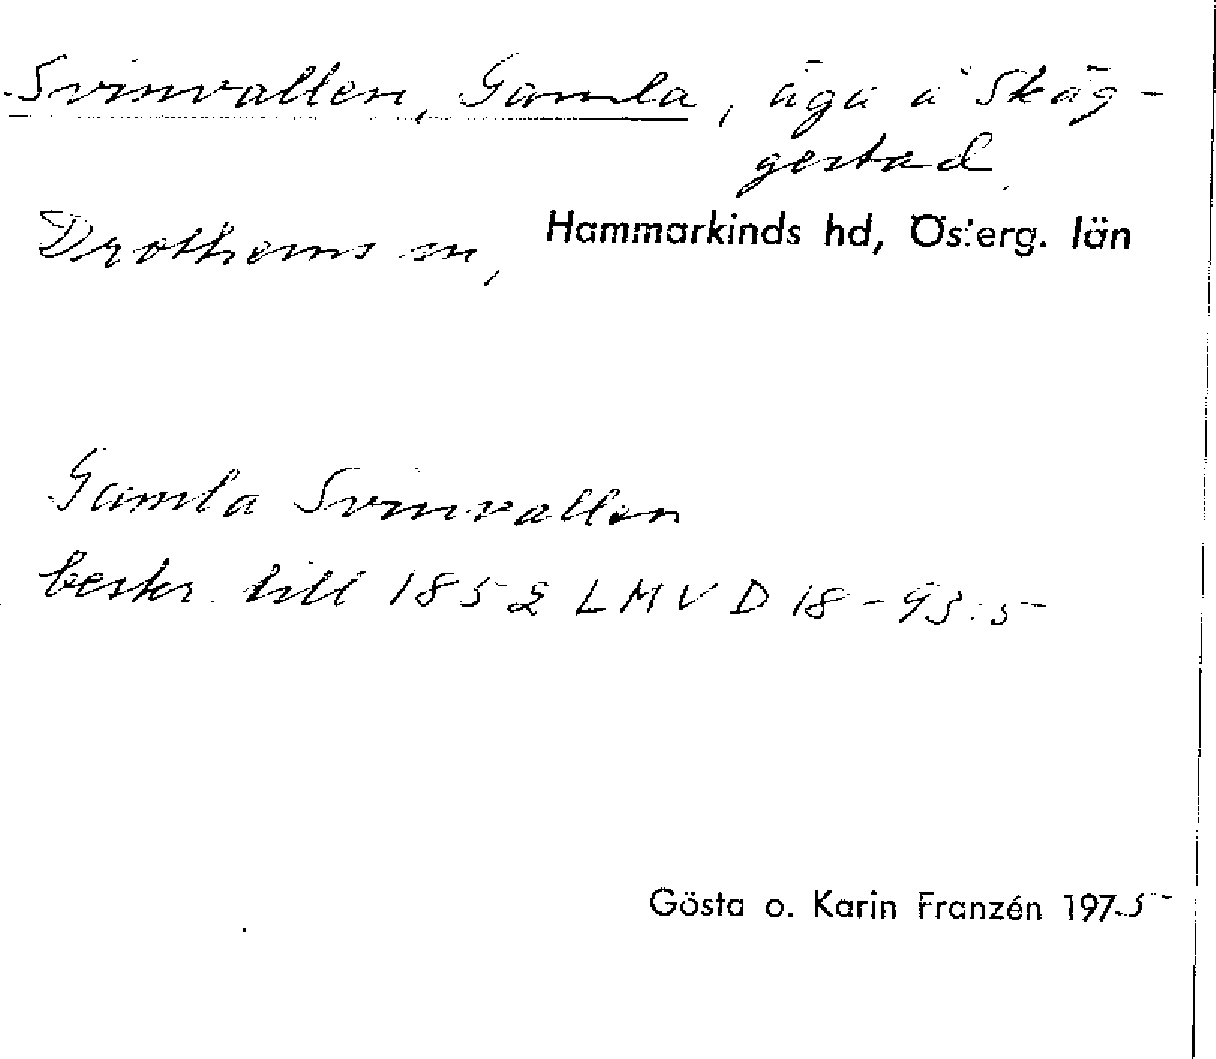 Svinvallen, Gamla, äga å Skäg-
gestad
Drothems sn, Hammarkinds hd, Österg. län
Gamla Svinvallen
beskr. till 1852 LMV D 18-93:5
Gösta o. Karin Franzén 1975